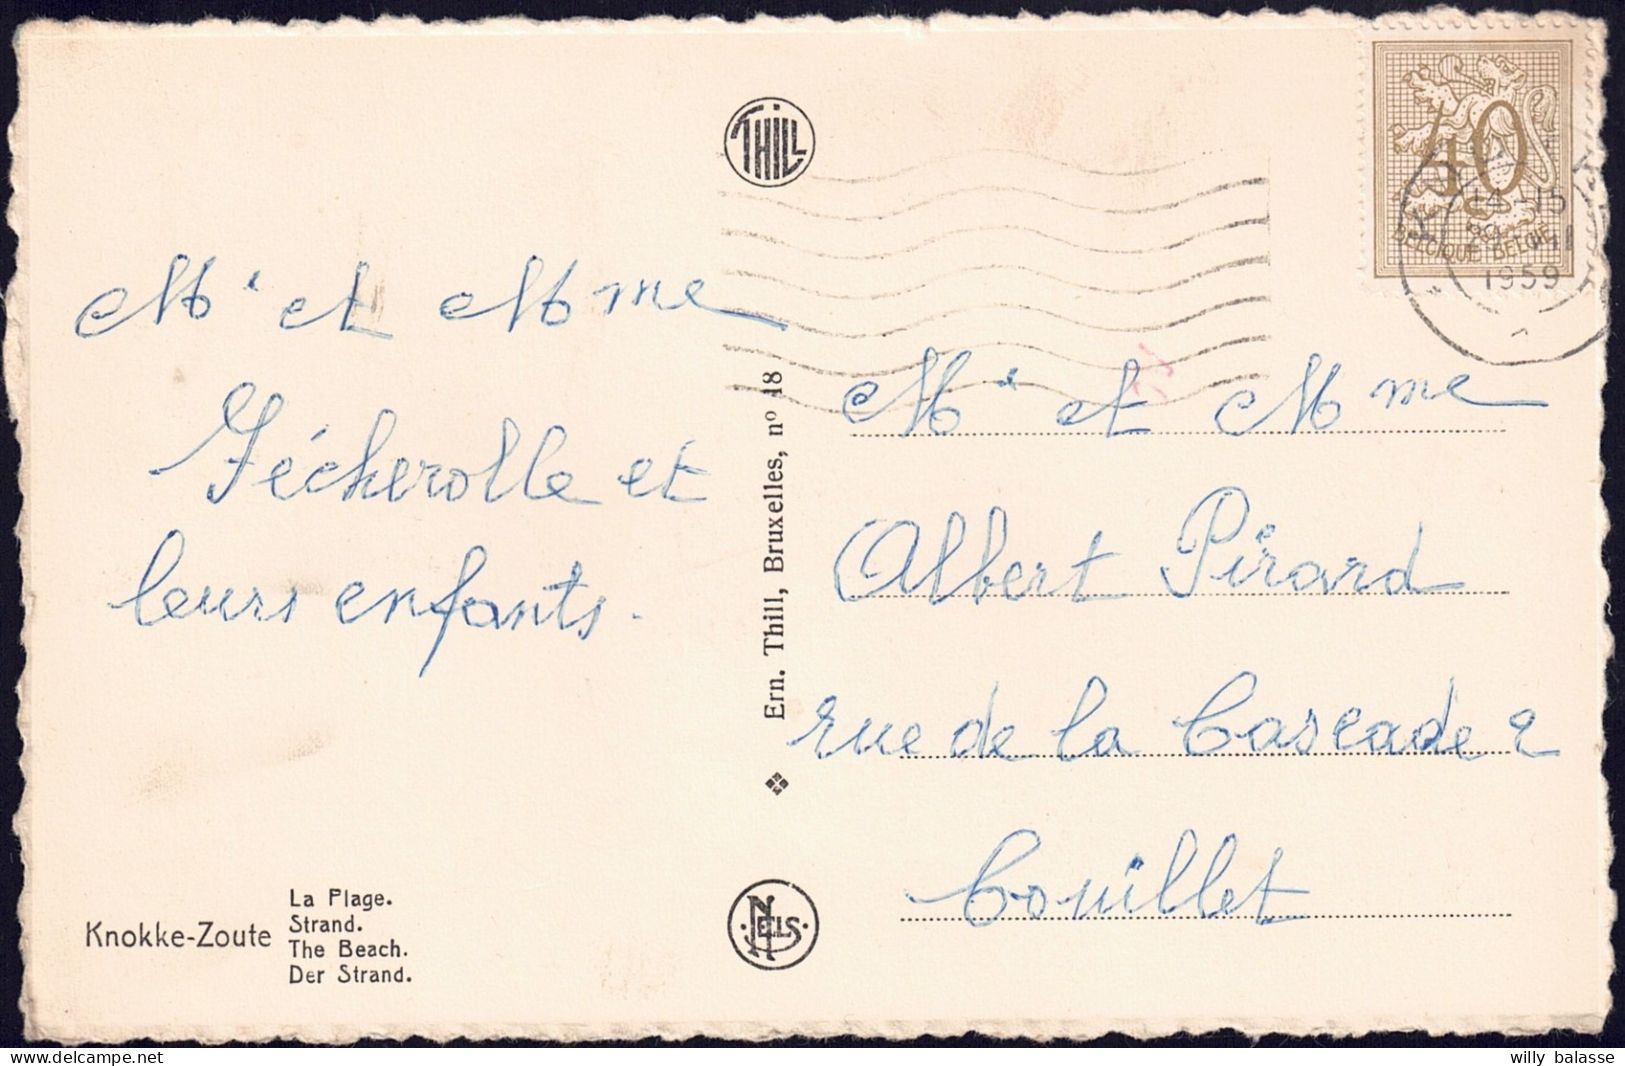 THILL
40
BELGIQUE BELGIË
14-15
1959
Mr et Mme
Fécherolle et
leurs enfants.
Mr et Mme
Albert Pirard
rue de la Cascade 2
Couillet
Ern. Thill, Bruxelles, nº 18
Knokke-Zoute
La Plage.
Strand.
The Beach.
Der Strand.
NELS
willy balasse